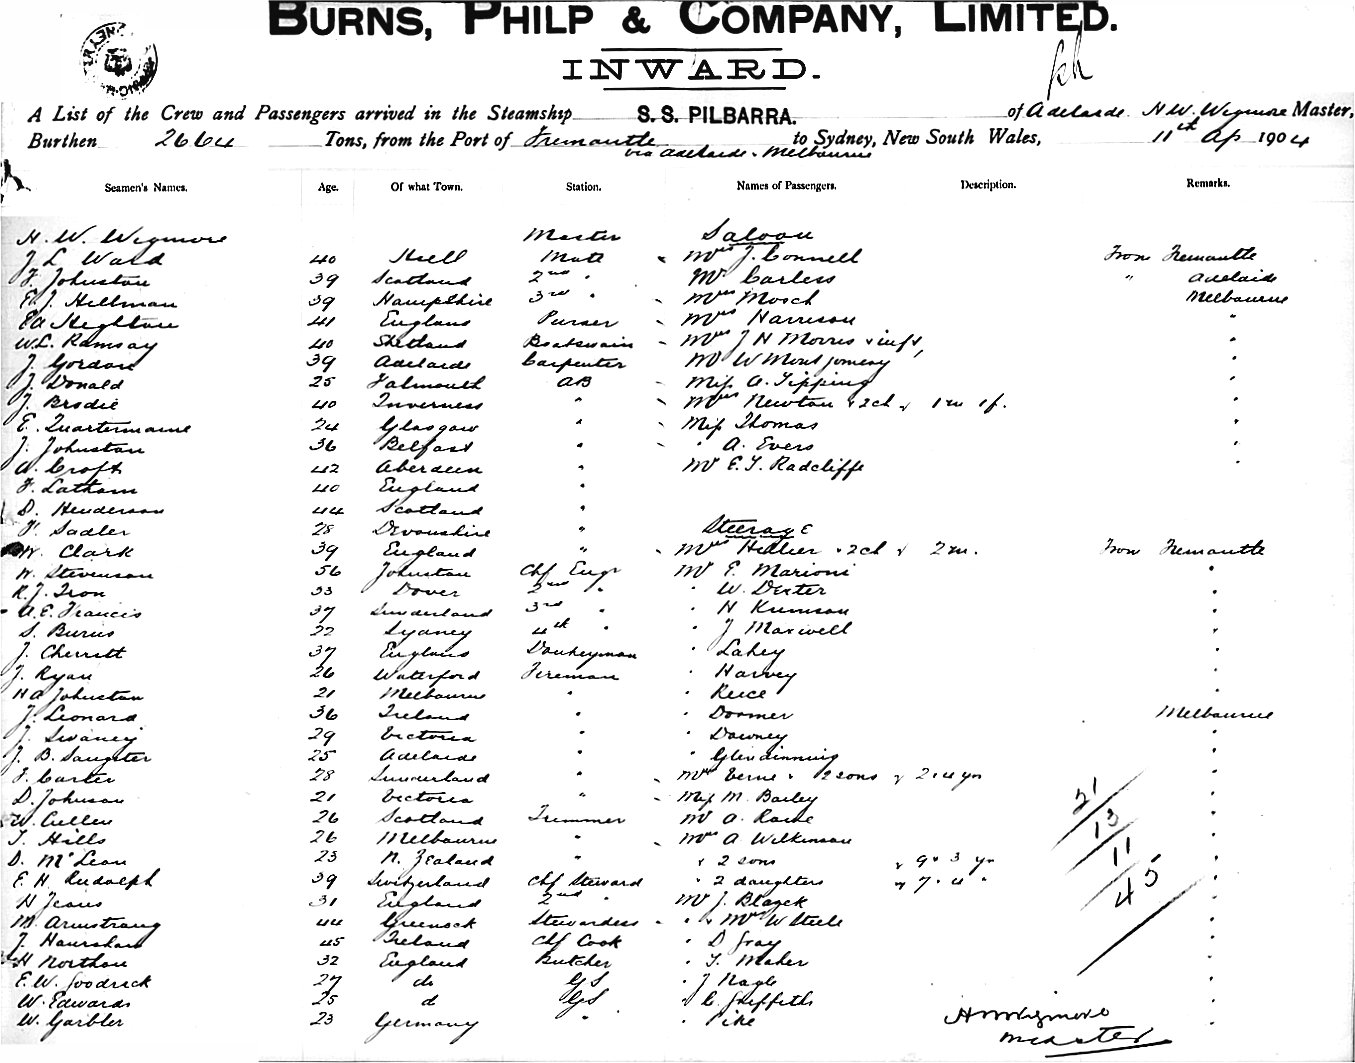 BURNS, PHILP & COMPANY, LIMITED.
INWARD.
A List of the Crew and Passengers arrived in the Steamship S. S. PILBARRA. of Adelaide H.W. Wigmore Master,
Burthen 2664 Tons, from the Port of Fremantle to Sydney, New South Wales, 11th Ap 1904
via Adelaide & Melbourne
Seamen's Names. Age. Of what Town. Station. Names of Passengers. Description. Remarks.
H. W. Wigmore Master Saloon
J L Ward 40 Hull Mate Mrs J. Connell From Fremantle
F. Johnston 39 Scotland 2nd " Mr Carless " Adelaide
E. J. Hellman 39 Hampshire 3rd " Mrs Mosch Melbourne
EA Heghton 41 England Purser Mrs Harrison "
W.L. Ramsay 40 Shetland Boatswain Mrs J H Morris & inft, "
J. Gordon 39 Adelaide Carpenter Mr W Montgomery "
J. Donald 25 Falmouth AB Miss A. Tipping "
J. Brodie 40 Inverness " Mrs Newton & 2ch 1m 1f. "
E. Quartermaine 24 Glasgow " Miss Thomas "
J. Johnston 36 Belfast " " A. Evers "
A. Croft 42 Aberdeen " Mr E. J. Radcliffe "
F. Latham 40 England "
D. Henderson 44 Scotland "
F. Sadler 28 Devonshire " Steerage
W. Clark 39 England " Mrs Hillier & 2ch 2m. From Fremantle
W. Stevenson 56 Johnston Chf Engr Mr E. Marioni "
R.J. Iron 33 Dover 2nd " " W. Dexter "
A.E. Francis 37 Sunderland 3rd " " H "
S. Burns 22 Sydney 4th " " J Maxwell "
J. Cherrett 37 England Donkeyman " Lahey "
J. Ryan 26 Waterford Fireman " Harvey "
H A Johnston 21 Melbourne " " Reece "
J. Leonard 36 Ireland " " Doomer Melbourne
J. Swaney 29 Victoria " " Downey "
J. B. Sangster 25 Adelaide " " Glendinning "
F. Carter 28 Sunderland " Mrs Verne & 2 sons 2 . 4 yrs "
D. Johnson 21 Victoria " Miss M. Bailey "
W. Cullen 26 Scotland Trimmer Mr A. "
T. Hills 26 Melbourne " Mrs A Wilkinson "
D. McLean 23 N. Zealand " & 2 sons 9 & 3 yr "
E. H. Rudolph 39 Switzerland Chf Steward " 2 daughters 7 . 4 " "
H Jeans 31 England 2nd " Mr J. "
M. Armstrong 44 Greenock Stewardess " & Mrs W Steele "
J. 45 Ireland Chf Cook " D Gray "
H Northan 32 England Butcher " T. Maher "
E.W. Goodrick 27 do GS " J Nagle "
W. Edwards 25 d GS " C. Griffeths "
W. Garbler 23 Germany " " Pike "
21
13
11
45
HW Wigmore
Master